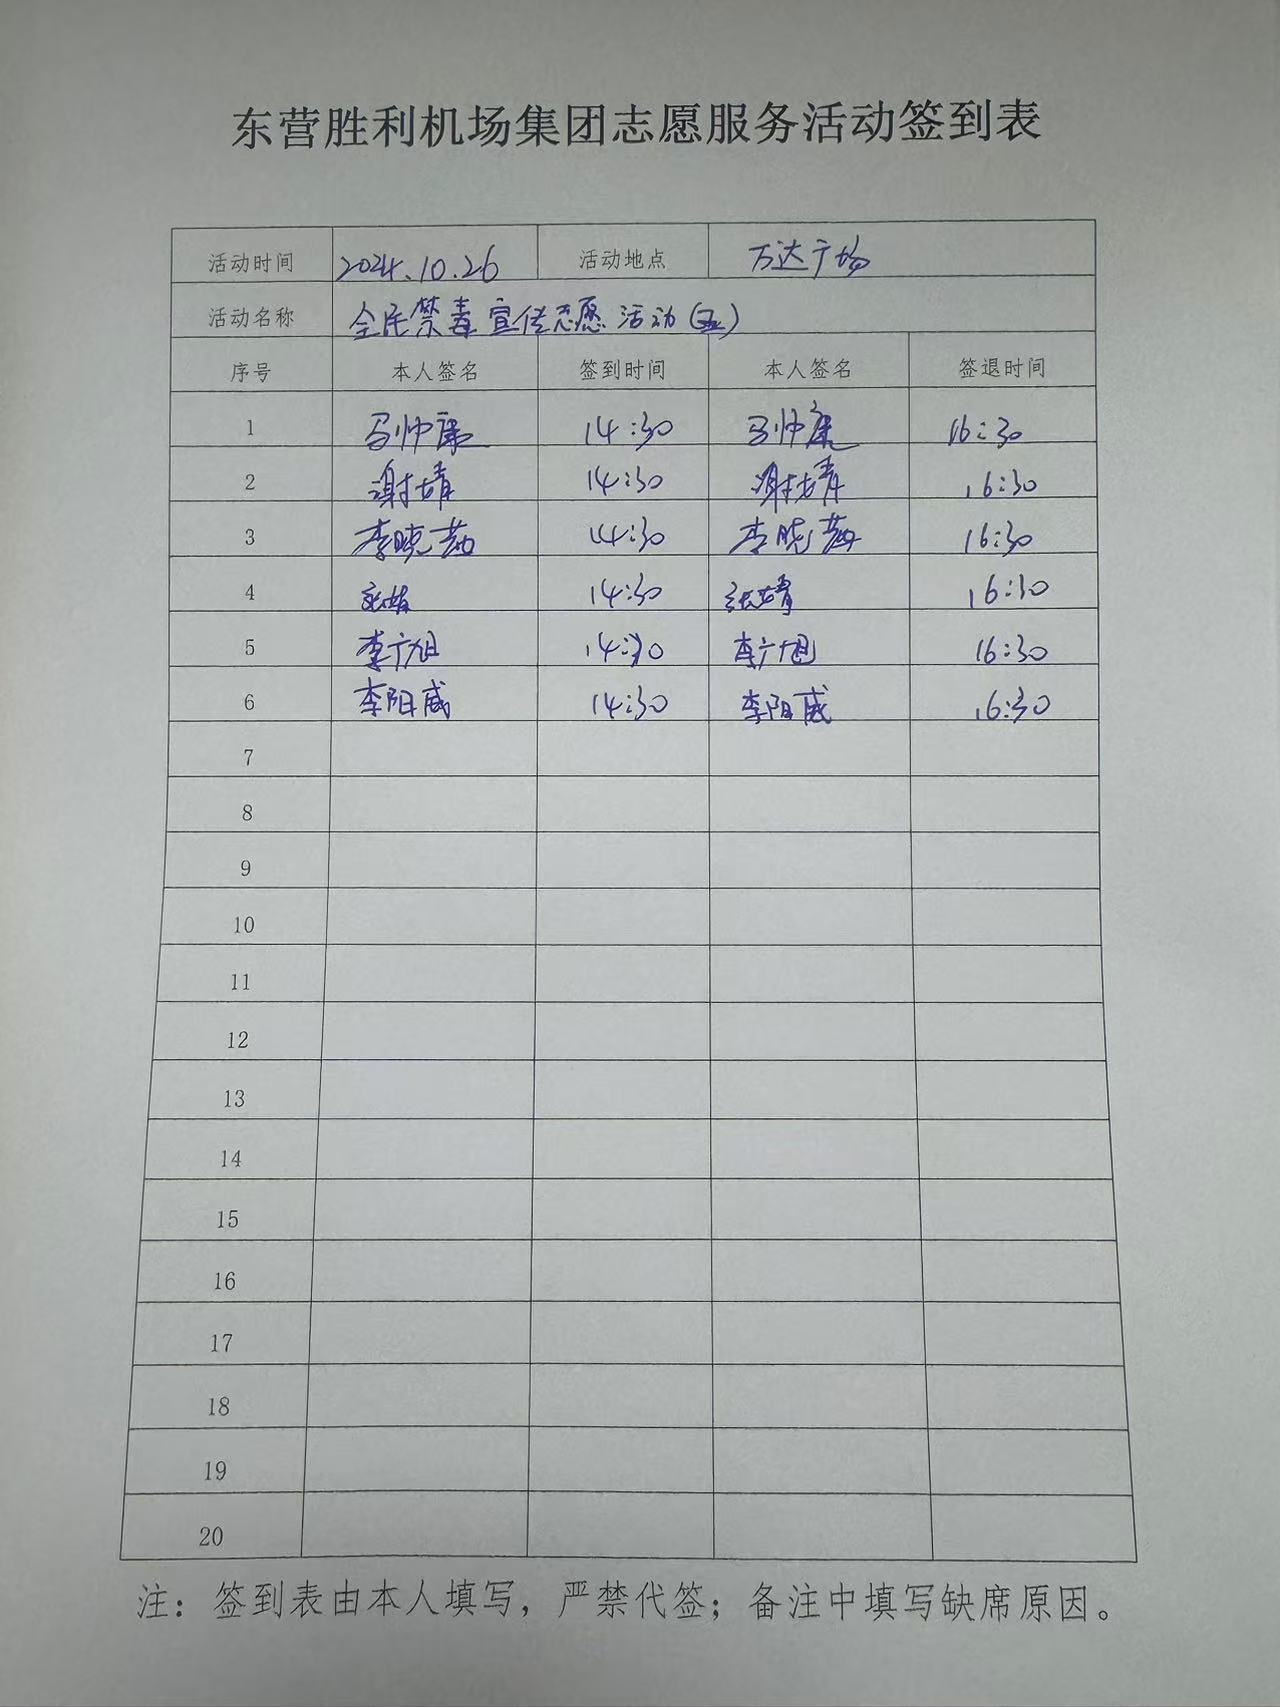 东营胜利机场集团志愿服务活动签到表
活动时间 2024.10.26 活动地点 万达广场
活动名称 全民禁毒宣传志愿活动(五)
序号 本人签名 签到时间 本人签名 签退时间
1 马帅康 14:30 马帅康 16:30
2 谢婧 14:30 谢婧 16:30
3 李晓茹 14:30 李晓茹 16:30
4 14:30 张婧 16:30
5 李广旭 14:30 李广旭 16:30
6 李阳威 14:30 李阳威 16:30
7
8
9
10
11
12
13
14
15
16
17
18
19
20
注：签到表由本人填写，严禁代签；备注中填写缺席原因。